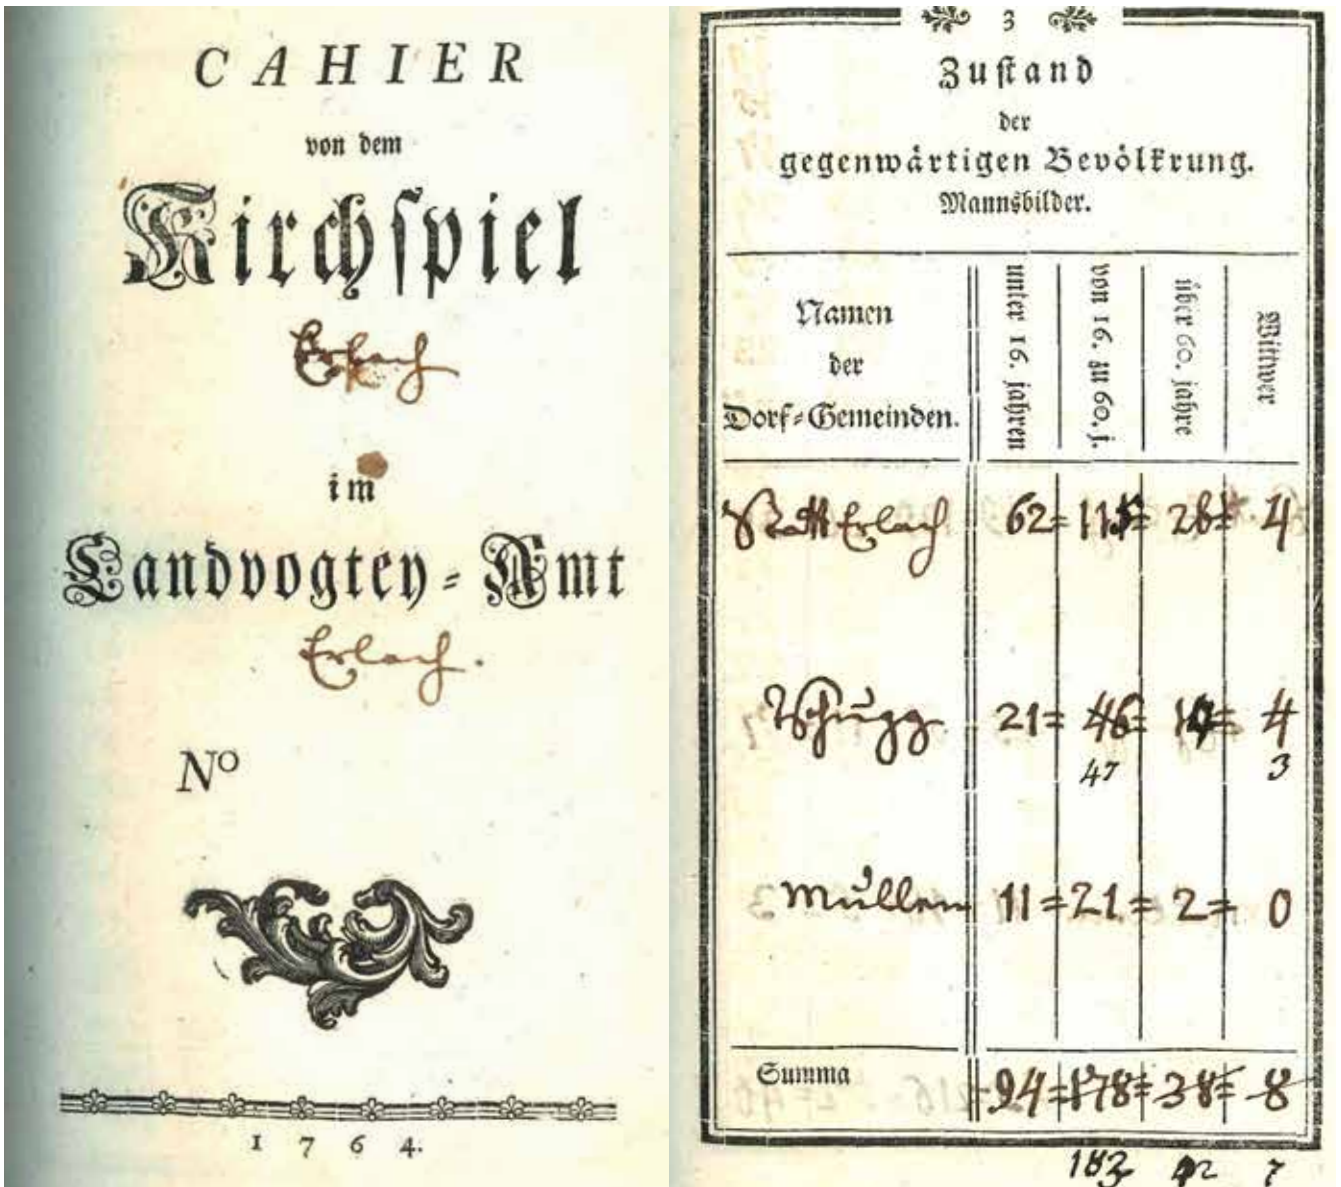 CAHIER
von dem
Kirchspiel
Erlach
im
Landvogtey-Amt
Erlach.
Nº
1764.
3
Zustand
der
gegenwärtigen Bevölkrung.
Mannsbilder.
Namen
der
Dorf-Gemeinden.
unter 16. jahren
von 16. zu 60. j.
über 60. jahre
Wittwer
Statt Erlach 62= 115= 4
Tschugg 21= 46= 4
47 3
Müllen 11= 21= 2= 0
Summa 94= 178= 38= 8
183 42 7